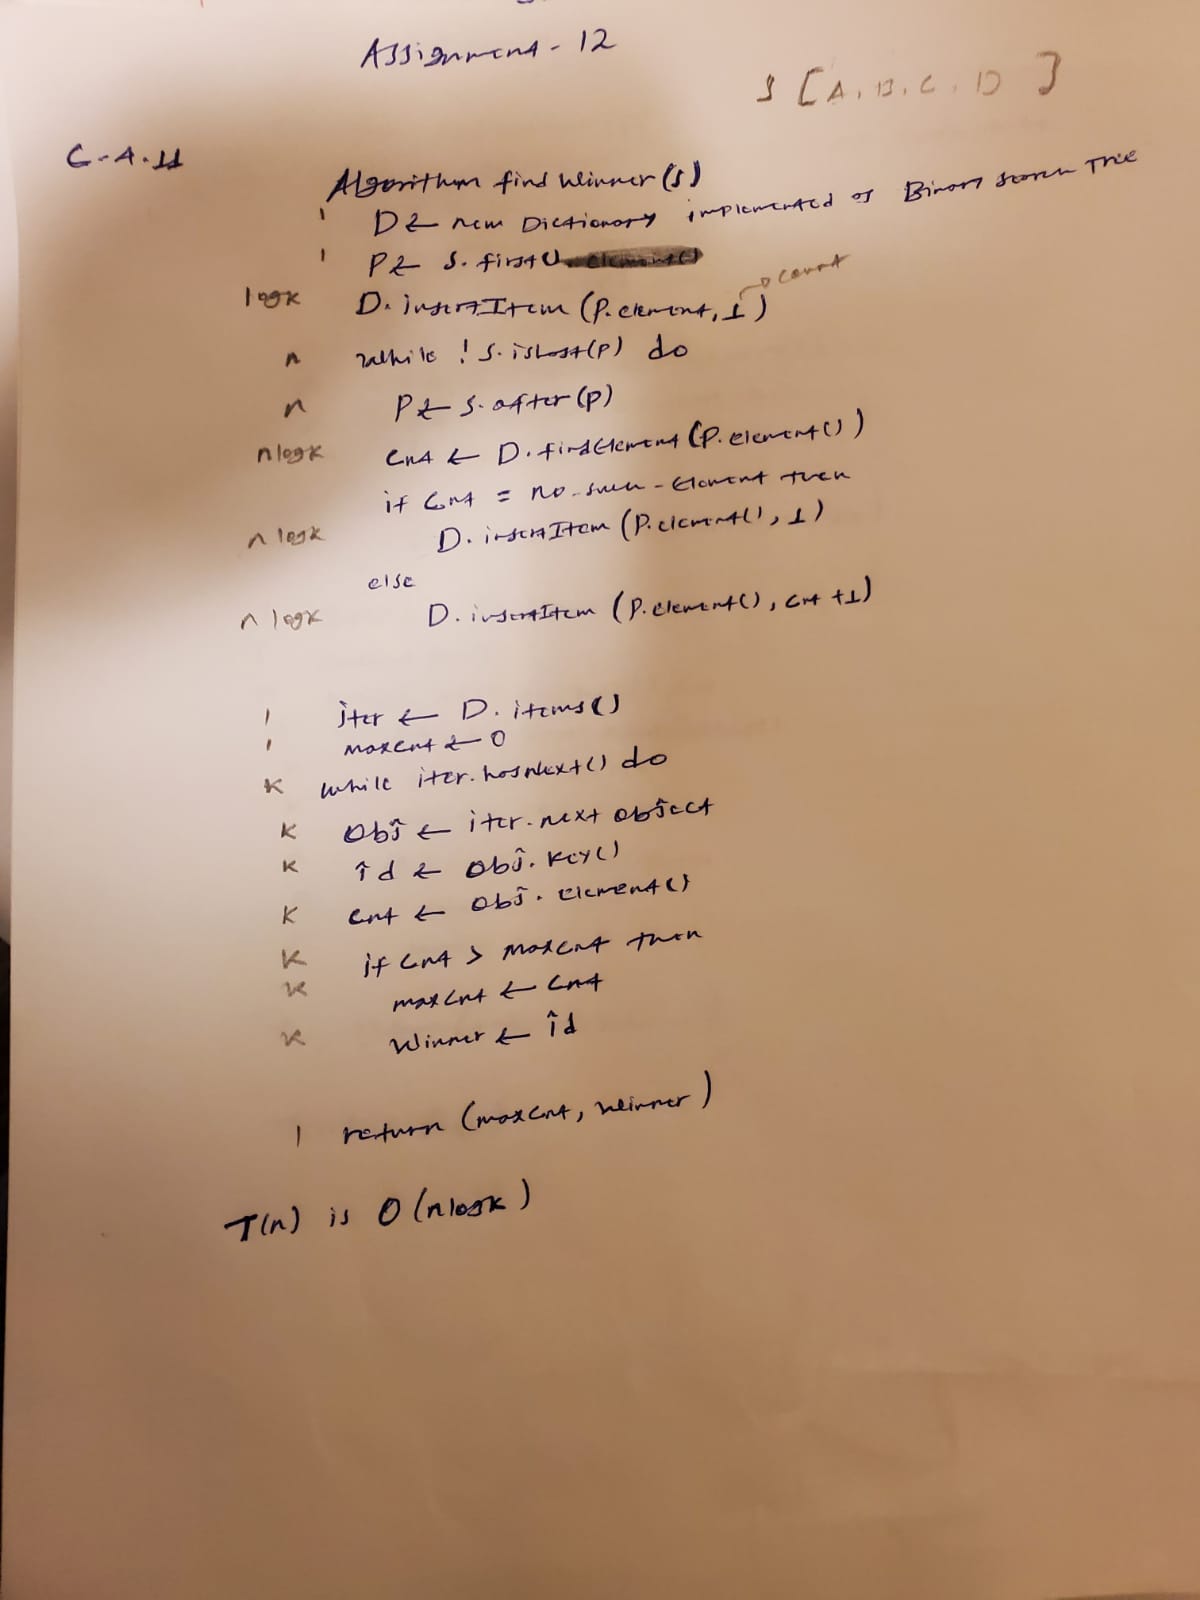 Assignment - 12
S [A, B, C, D ]
C-4.11
Algorithm find Winner (s)
1 D ← new Dictionary implemented of Binary Search Tree
1 P ← S. first()
→ count
logk D. insertItem (P. element, 1)
n while ! S. isLast(p) do
n P ← S. after (p)
nlogk Cnt ← D. findElement (P. element())
if Cnt = no - such - Element then
n logk D. insertItem (P. element(), 1)
else
n logk D. insertItem (P. element(), cnt +1)
1 iter ← D. items()
1 maxCnt ← 0
K while iter. hasNext() do
K Obj ← iter. next object
K id ← Obj. Key()
K Cnt ← Obj. Element()
K if Cnt > maxCnt then
K maxCnt ← Cnt
K Winner ← id
1 return (maxCnt, winner)
T(n) is O(nlogk)